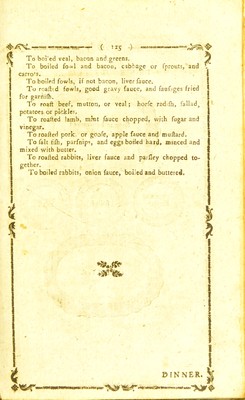 ( 125 )
To boiled veal, bacon and greens.
To boiled fowl and bacon, cabbage or sprouts, and
carrots.
To boiled fowls, if not bacon, liver sauce.
To roasted fowls, good gravy sauce, and sausages fried
for garnish.
To roast beef, mutton, or veal; horse radish, sallad,
potatoes or pickles.
To roasted lamb, mint sauce chopped, with sugar and
vinegar.
To roasted pork or goose, apple sauce and mustard.
To salt fish, parsnips, and eggs boiled hard, minced and
mixed with butter.
To roasted rabbits, liver sauce and parsley chopped to-
gether.
To boiled rabbits, onion sauce, boiled and buttered.
DINNER.